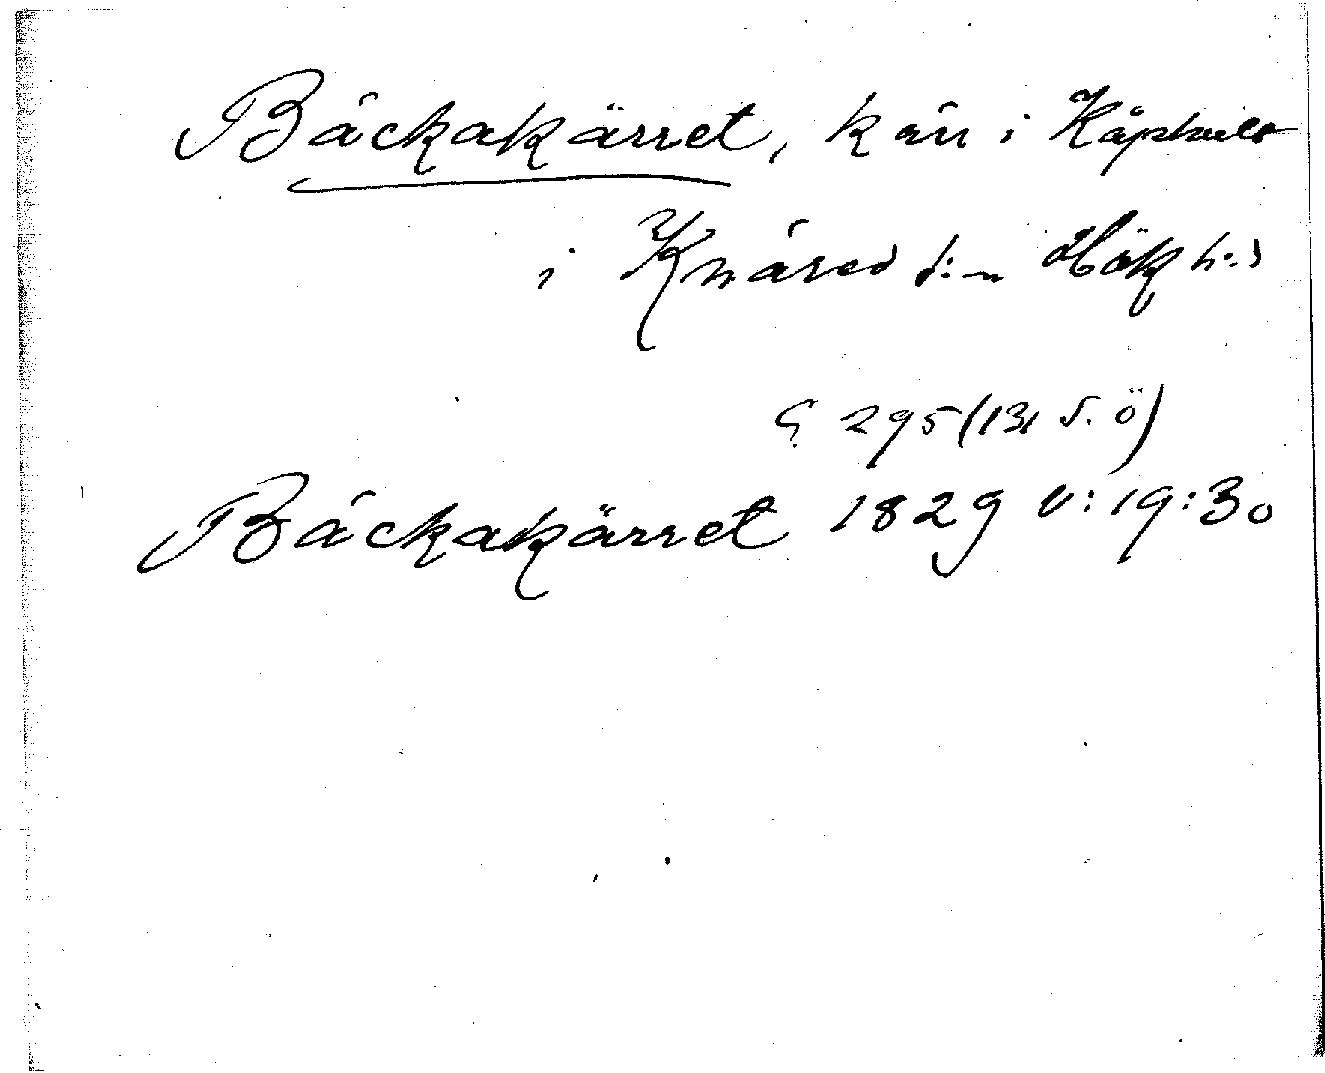 Bäckakärret, kärr i Kåphult
i Knäred s:n Hök h:d
G 295 (131 S. Ö)
Bäckakärret 1829 V:19:30